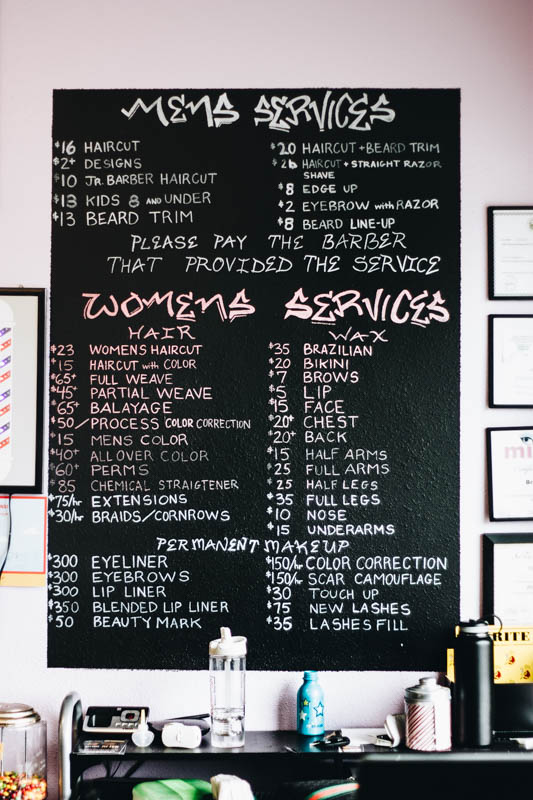 MENS SERVICES
$16 HAIRCUT
$2+ DESIGNS
$10 JR. BARBER HAIRCUT
$13 KIDS 8 AND UNDER
$13 BEARD TRIM
$20 HAIRCUT + BEARD TRIM
$26 HAIRCUT + STRAIGHT RAZOR
SHAVE
$8 EDGE UP
$2 EYEBROW with RAZOR
$8 BEARD LINE-UP
PLEASE PAY THE BARBER
THAT PROVIDED THE SERVICE
WOMENS SERVICES
HAIR
$23 WOMENS HAIRCUT
$15 HAIRCUT with COLOR
$65+ FULL WEAVE
$45+ PARTIAL WEAVE
$65+ BALAYAGE
$50/PROCESS COLOR CORRECTION
$15 MENS COLOR
$40+ ALL OVER COLOR
$60+ PERMS
$85 CHEMICAL STRAIGTENER
$75/hr EXTENSIONS
$30/hr BRAIDS/CORNROWS
WAX
$35 BRAZILIAN
$20 BIKINI
$7 BROWS
$5 LIP
$15 FACE
$20+ CHEST
$20+ BACK
$15 HALF ARMS
$25 FULL ARMS
$25 HALF LEGS
$35 FULL LEGS
$10 NOSE
$15 UNDERARMS
PERMANENT MAKEUP
$300 EYELINER
$300 EYEBROWS
$300 LIP LINER
$350 BLENDED LIP LINER
$50 BEAUTY MARK
$150/hr COLOR CORRECTION
$150/hr SCAR CAMOUFLAGE
$30 TOUCH UP
$75 NEW LASHES
$35 LASHES FILL
mi
RITE